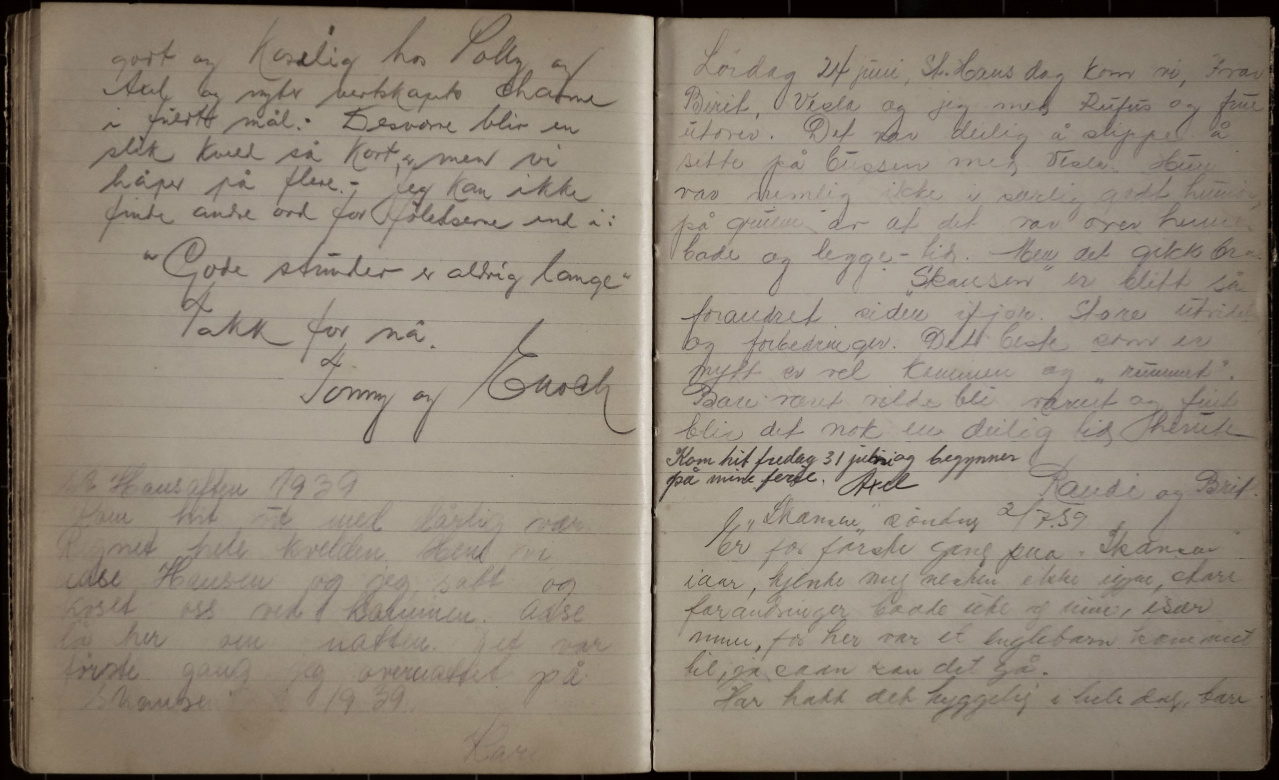 godt og Koselig hos Polly og
Axel og nyter vertskapets charme
i fuldt mål.- Desverre blir en
slik kveld så kort, men vi
håper på flere.- Jeg kan ikke
finde andre ord for følelserne end i:
"Gode stunder er aldrig lange"
Takk for nå.
Tommy og Enoch
St Hansaften 1939
Kom hit ut med dårlig vær.
Regnet hele kvelden. Men vi
Hansen og jeg satt og
koset oss ved kaminen.
lå her om natten. Det var
første gang jeg overnattet på
1939
Lördag 24 juni, St. Hans dag kom vi,
Berit, Vesla og jeg med Rufus og frue
utover. Det var deilig å slippe å
sette på bussen med Vesla. Hun
var nemlig ikke i særlig godt humör,
på grunn av at det var over hennes
bade og legge-tid. Men det gikk bra.
"Skansen" er blitt så
forandret siden ifjor. Store
og forbedringer. Det beste som er
nytt er vel kaminen og "rummet".
Bare været vilde bli varmt og fint
blir det nok en deilig tid
Kom hit fredag 31 juli og begynner
på mine ferie. Axel
Randi og Brit.
"Skansen" söndag 2/7.39
Er for förste gang paa Skansen
iaar, kjente mig nesten ikke igjen, store
forandringer baade ute og inne, især
inne, for her var et Englebarn kommet
til, ja saan kan det gå.
Har hatt det hyggelig i hele dag, bare